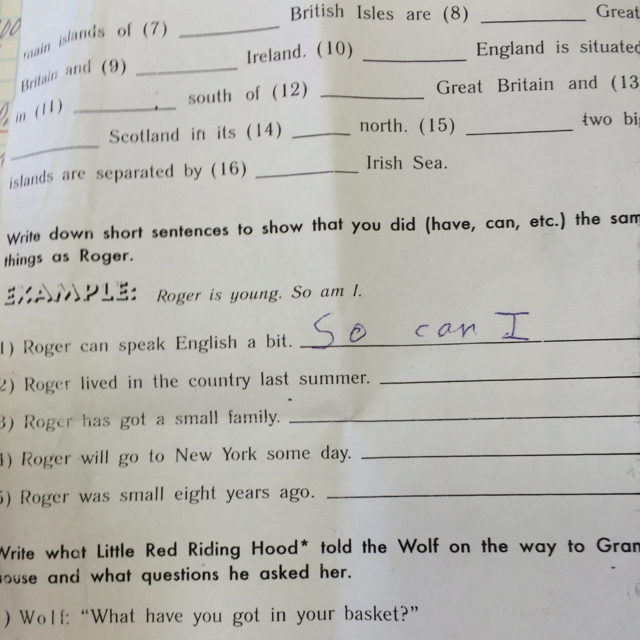 British Isles are (8) ________ Great
main islands of (7) ________
Britain and (9) ________ Ireland. (10) ________ England is situated
in (11) ________ south of (12) ________ Great Britain and (13
________ Scotland in its (14) ________ north. (15) ________ two bi
islands are separated by (16) ________ Irish Sea.
Write down short sentences to show that you did (have, can, etc.) the sam
things as Roger.
EXAMPLE: Roger is young. So am I.
1) Roger can speak English a bit. So can I
2) Roger lived in the country last summer.
3) Roger has got a small family.
4) Roger will go to New York some day.
5) Roger was small eight years ago.
Write what Little Red Riding Hood* told the Wolf on the way to Gran
ouse and what questions he asked her.
) Wolf: “What have you got in your basket?”